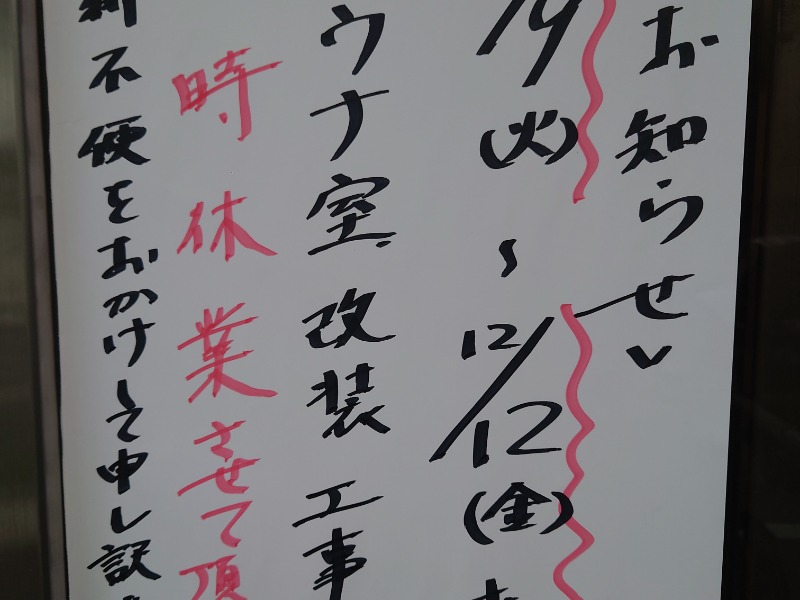 お知らせ
9(火)~12/12(金)
ウナ室改装工事
時休業させて頂
不便をおかけして申し訳